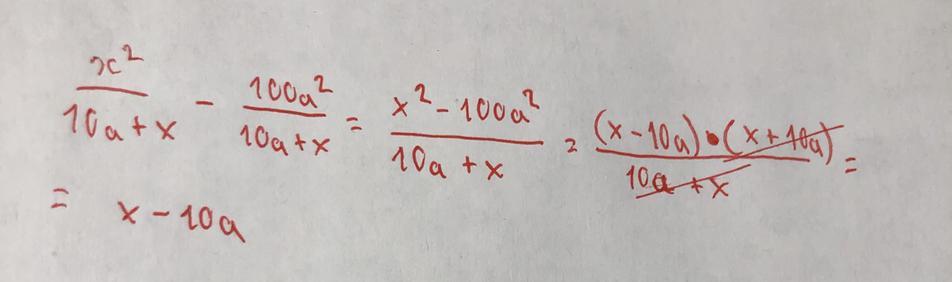 x²/(10a+x) - 100a²/(10a+x) = (x²-100a²)/(10a+x) = (x-10a)•(x+10a)/(10a+x) =
= x-10a